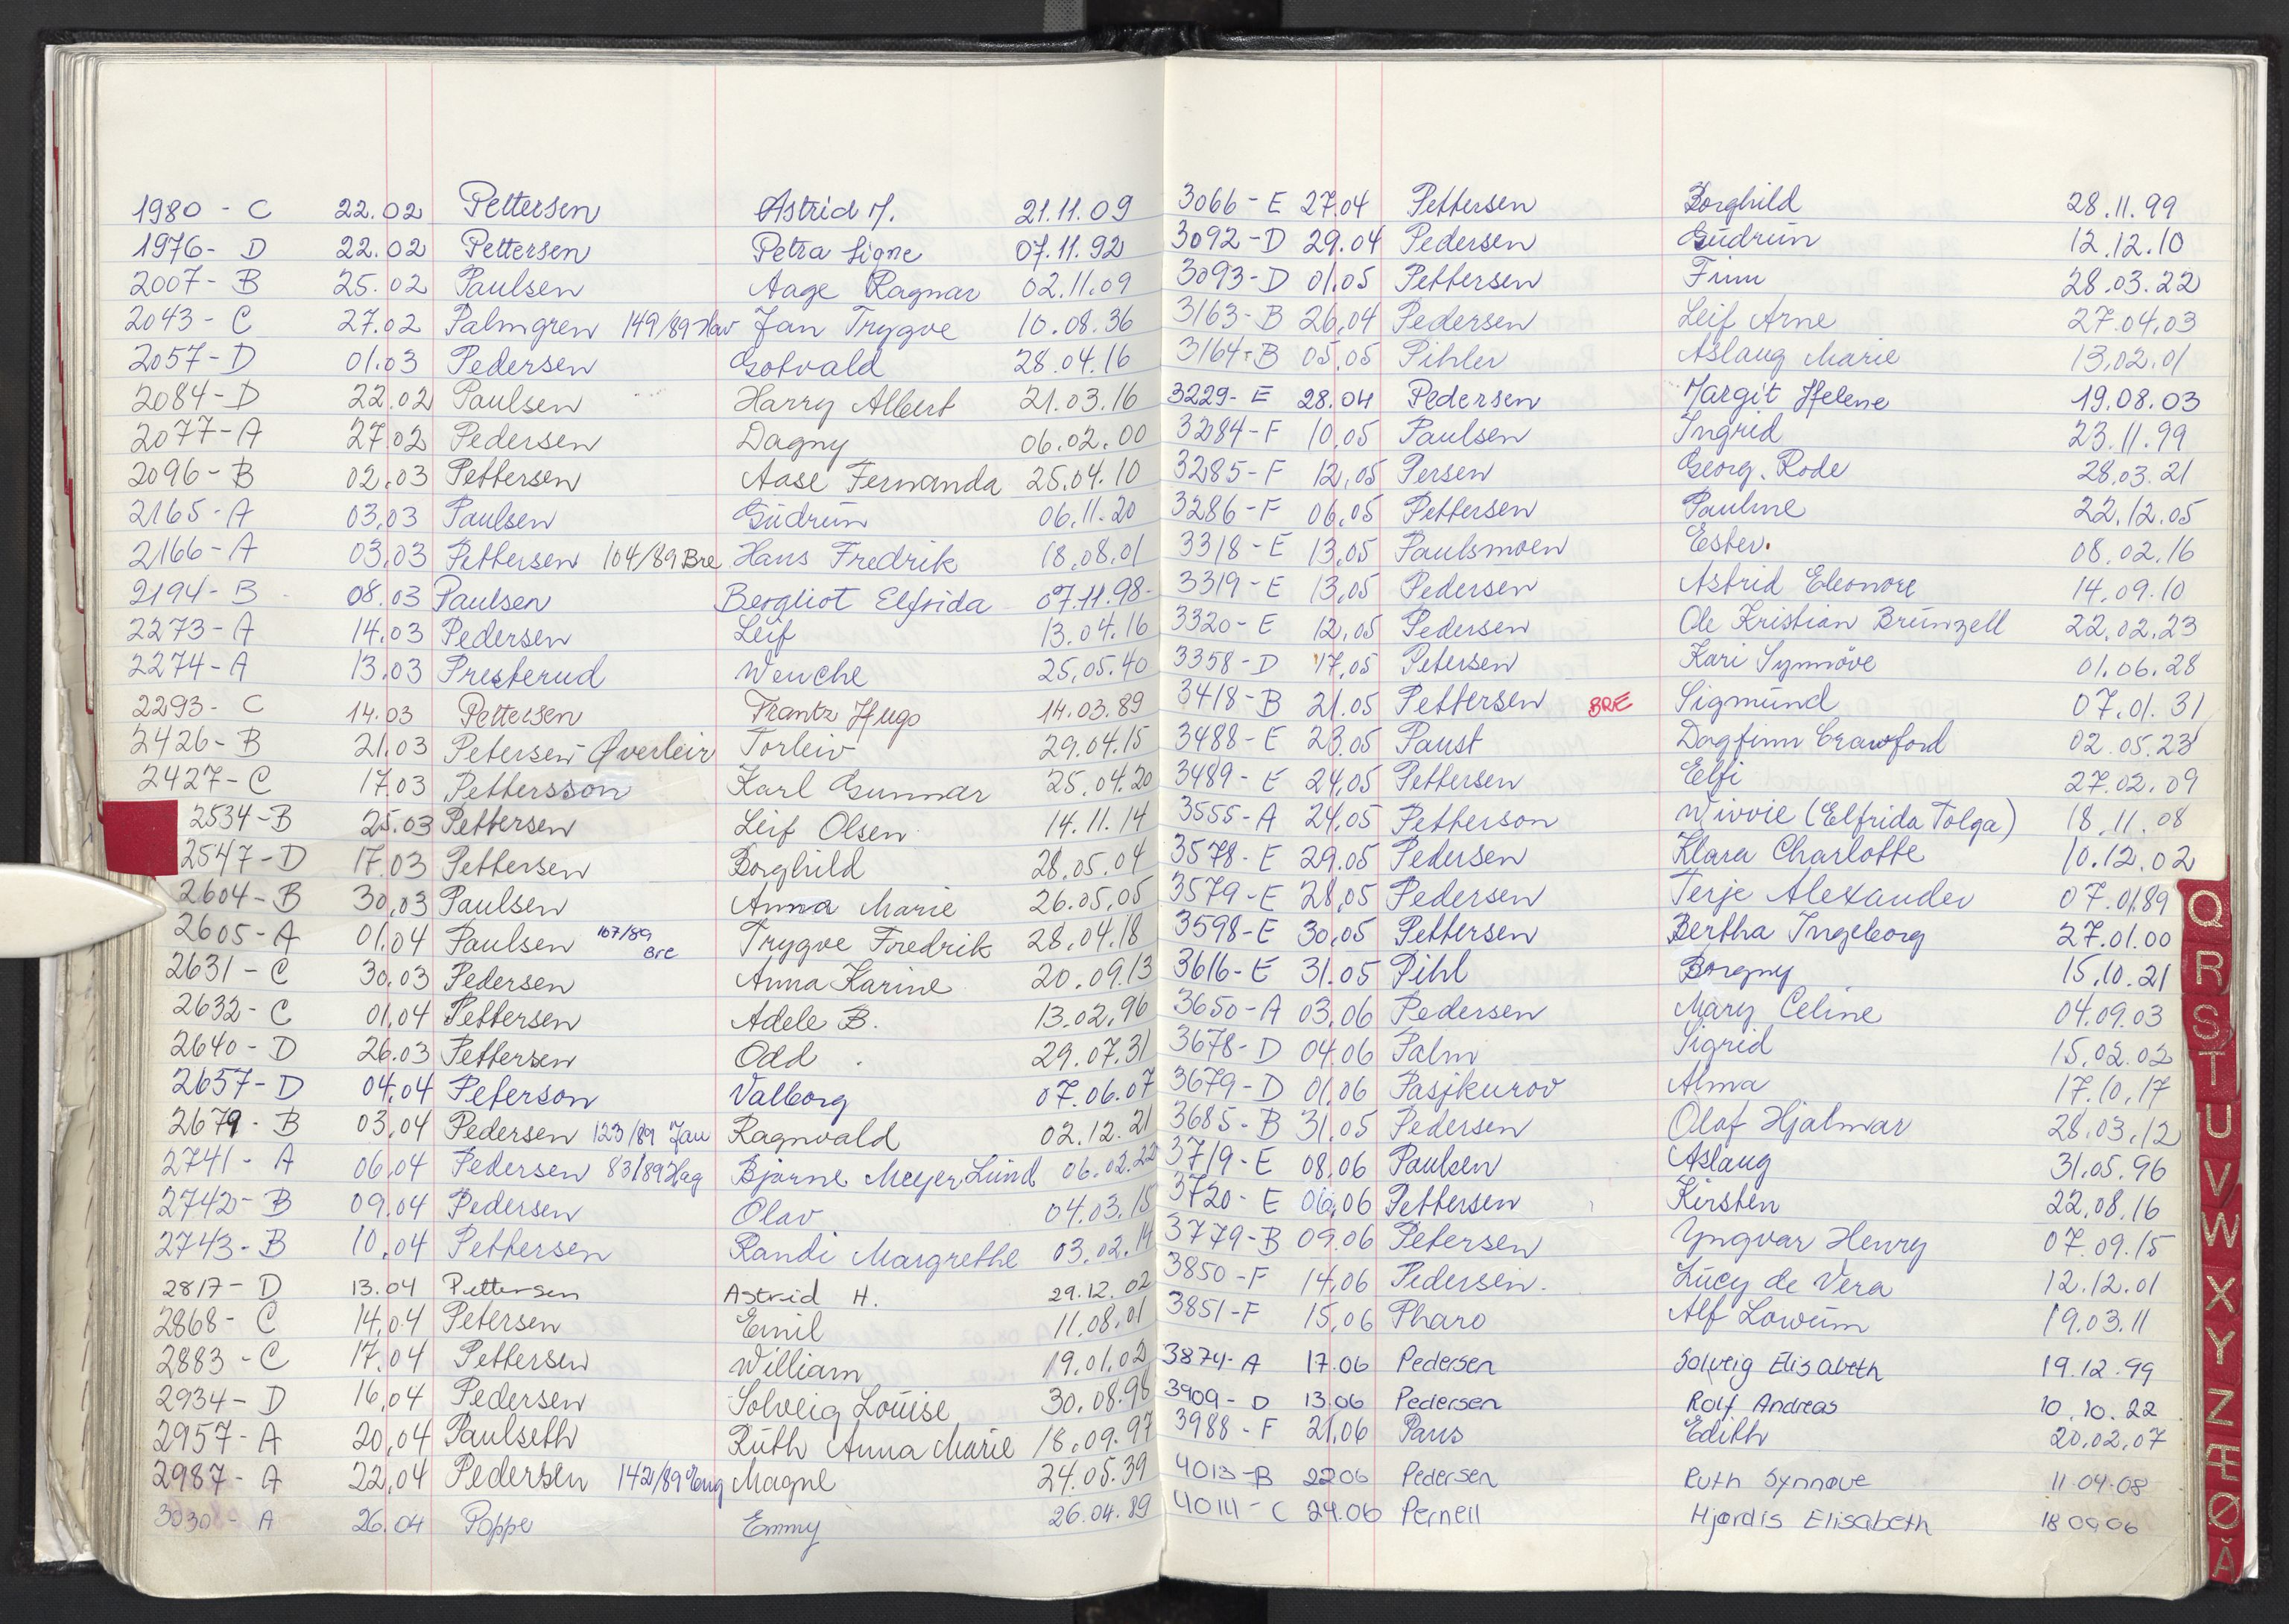 1980 - C 22.02 Pettersen Astrid M. 21.11.09
1976 - D 22.02 Pettersen Petra Signe 07.11.92
2007 - B 25.02 Paulsen Aage Ragnar 02.11.09
2043 - C 27.02 Palmgren 149/89 Hav Jan Trygve 10.08.36
2057 - D 01.03 Pedersen Gotvald 28.04.16
2084 - D 22.02 Paulsen Harry Albert 21.03.16
2077 - A 27.02 Pedersen Dagny 06.02.00
2096 - B 02.03 Pettersen Aase Fernanda 25.04.10
2165 - A 03.03 Paulsen Gudrun 06.11.20
2166 - A 03.03 Pettersen 104/89 Bre Hans Fredrik 18.08.01
2194 - B 08.03 Paulsen Bergliot Elfrida 07.11.98
2273 - A 14.03 Pedersen Leif 13.04.16
2274 - A 13.03 Presterud Wenche 25.05.40
2293 - C 14.03 Pettersen Frantz Hugo 14.03.89
2426 - B 21.03 Petersen-Øverleir Torleiv 29.04.15
2427 - C 17.03 Pettersson Karl Gunnar 25.04.20
2534 - B 25.03 Pettersen Leif Olsen 14.11.14
2547 - D 17.03 Pettersen Borghild 28.05.04
2604 - B 30.03 Paulsen Anna Marie 26.05.05
2605 - A 01.04 Paulsen 107/89 Bre Trygve Fredrik 28.04.18
2631 - C 30.03 Pedersen Anna Karine 20.09.13
2632 - C 01.04 Pettersen Adele B. 13.02.96
2640 - D 26.03 Pettersen Odd 29.07.31
2657 - D 04.04 Peterson Valborg 07.06.07
2679 - B 03.04 Pedersen 123/89 Jau Ragnvald 02.12.21
2741 - A 06.04 Pedersen 83/89 Hag Bjarne Meyer Lund 06.02.22
2742 - B 09.04 Pedersen Olav 04.03.15
2743 - B 10.04 Pettersen Randi Margrethe 03.02.14
2817 - D 13.04 Pettersen Astrid H. 29.12.02
2868 - C 14.04 Petersen Emil 11.08.01
2883 - C 17.04 Pettersen William 19.01.02
2934 - D 16.04 Pedersen Solveig Louise 30.08.98
2957 - A 20.04 Paulseth Ruth Anna Marie 18.09.97
2987 - A 22.04 Pedersen 142/89 Magne 24.05.39
3030 - A 26.04 Poppe Emmy 26.04.89
3066 - E 27.04 Pettersen Borghild 28.11.99
3092 - D 29.04 Pedersen Gudrun 12.12.10
3093 - D 01.05 Pettersen Finn 28.03.22
3163 - B 26.04 Pedersen Leif Arne 27.04.03
3164 - B 05.05 Pihler Aslaug Marie 13.02.01
3229 - E 28.04 Pedersen Margit Helene 19.08.03
3284 - F 10.05 Paulsen Ingrid 23.11.99
3285 - F 12.05 Persen Georg. Rode 28.03.21
3286 - F 06.05 Pettersen Pauline 22.12.05
3318 - E 13.05 Paulsmoen Ester. 08.02.16
3319 - E 13.05 Pedersen Astrid Eleonore 14.09.10
3320 - E 12.05 Pedersen Ole Kristian Brünzell 22.02.23
3358 - D 17.05 Petersen Kari Synnöve 01.06.28
3418 - B 21.05 Pettersen BRE Sigmund 07.01.31
3488 - E 23.05 Paust Dagfinn Crawford 02.05.23
3489 - E 24.05 Pettersen Elfi 27.02.09
3555 - A 24.05 Petterson Wivvie (Elfrida Tolga) 18.11.08
3578 - E 29.05 Pedersen Klara Charlotte 10.12.02
3579 - E 28.05 Pedersen Terje Alexander 07.01.89
3598 - E 30.05 Pettersen Bertha Ingeborg 27.01.00
3616 - E 31.05 Pihl Borgny 15.10.21
3650 - A 03.06 Pedersen Mary Celine 04.09.03
3678 - D 04.06 Palm Sigrid 15.02.02
3679 - D 01.06 Pasjkurov Alma 17.10.17
3685 - B 31.05 Pedersen Olaf Hjalmar 28.03.12
3719 - E 08.06 Paulsen Aslaug 31.05.96
3720 - E 06.06 Pettersen Kirsten 22.08.16
3779 - B 09.06 Petersen Yngvar Henry 07.09.15
3850 - F 14.06 Pedersen. Lucy de Vera 12.12.01
3851 - F 15.06 Pharo Alf Lowum 19.03.11
3874 - A 17.06 Pedersen Solveig Elisabeth 19.12.99
3909 - D 13.06 Pedersen Rolf Andreas 10.10.22
3988 - F 21.06 Paus Edith 20.02.07
4013 - B 22 06 Pedersen Ruth Synnøve 11.04.08
4014 - C 24.06 Pernell Hjørdis Elisabeth 18 09 06
Q
R
S
T
U
V
W
X
Y
Z
Æ
Ø
Å